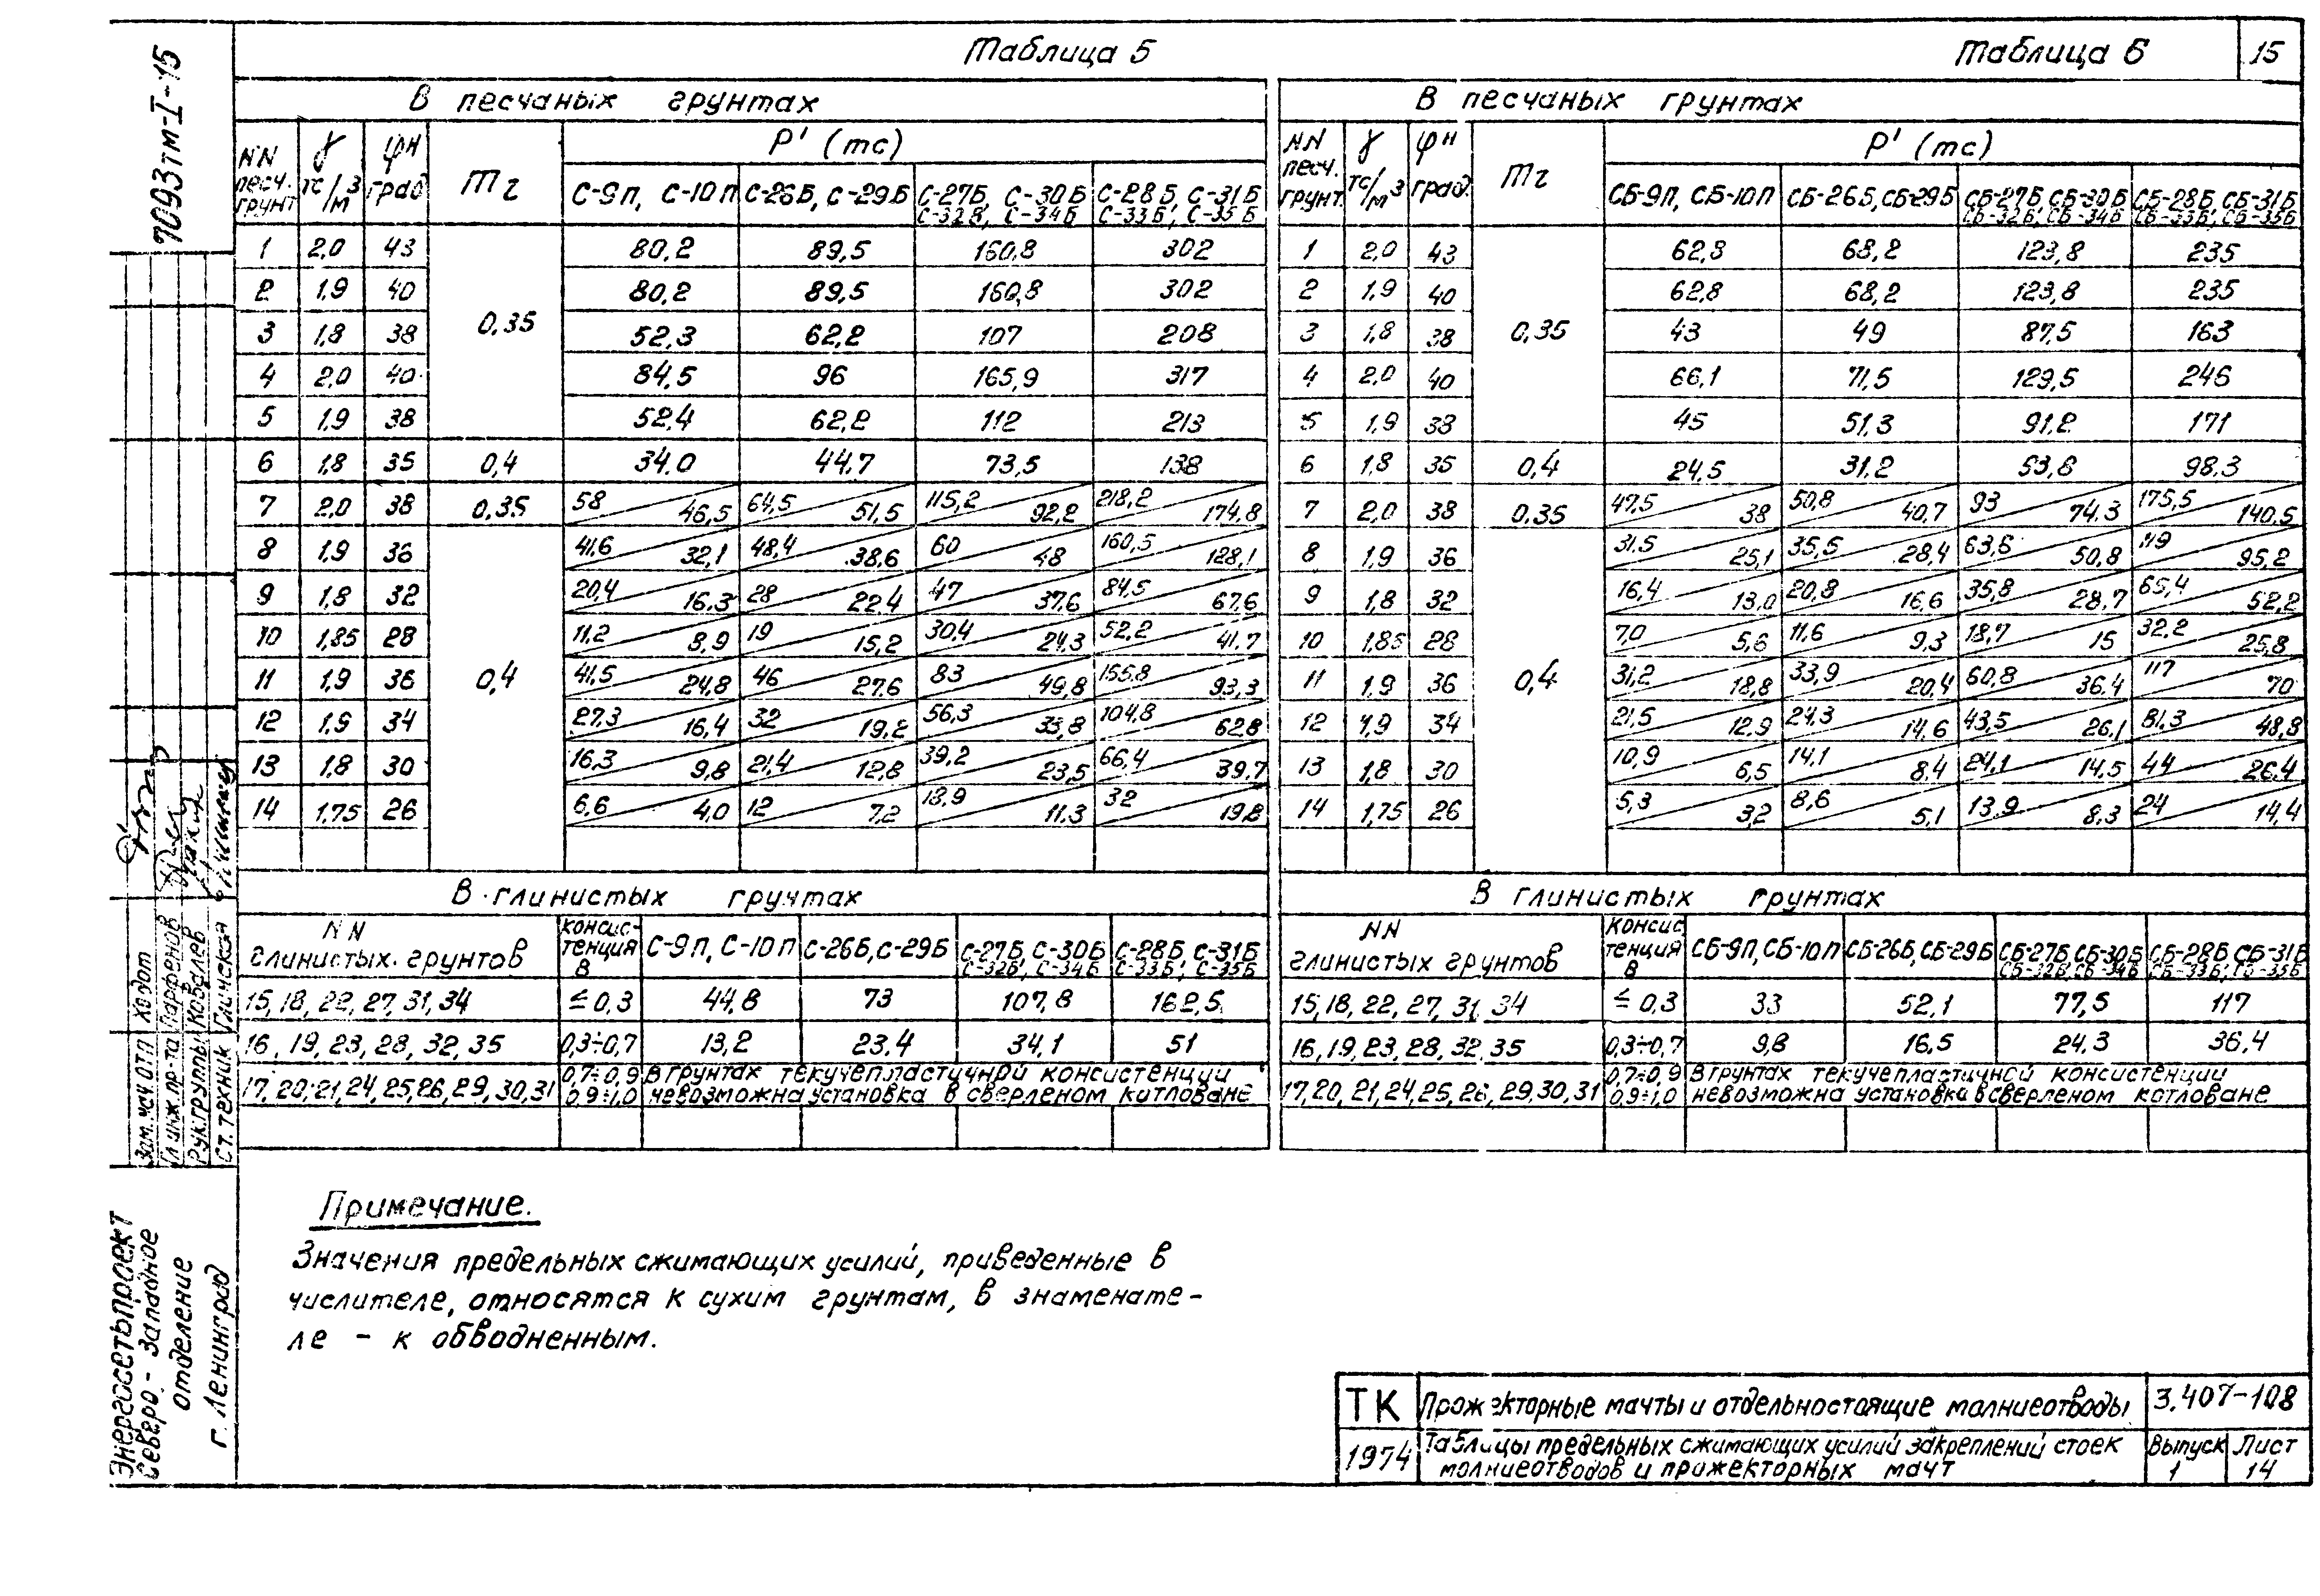 Таблица 5
Таблица 6
15
7093тм-I-15
В песчаных грунтах
NN песч. грунт γ тс/м3 φн град mг P' (тс)
С-9П, С-10П С-26Б, С-29Б С-27Б, С-30Б С-32Б, С-34Б С-28Б, С-31Б С-33Б, С-35Б
1 2,0 43 0,35 80,2 89,5 160,8 302
2 1,9 40 80,2 89,5 160,8 302
3 1,8 38 52,3 62,2 107 208
4 2,0 40 84,5 96 165,9 317
5 1,9 38 52,4 62,2 112 213
6 1,8 35 0,4 34,0 44,7 73,5 138
7 2,0 38 0,35 58/46,5 64,5/51,5 115,2/92,2 218,2/174,8
8 1,9 36 0,4 41,6/32,1 48,4/38,6 60/48 160,5/128,1
9 1,8 32 20,4/16,3 28/22,4 47/37,6 84,5/67,6
10 1,85 28 11,2/8,9 19/15,2 30,4/24,3 52,2/41,7
11 1,9 36 41,5/24,8 46/27,6 83/49,8 155,8/93,3
12 1,9 34 27,3/16,4 32/19,2 56,3/33,8 104,8/62,8
13 1,8 30 16,3/9,8 21,4/12,8 39,2/23,5 66,4/39,7
14 1,75 26 6,6/4,0 12/7,2 18,9/11,3 32/19,8
В глинистых грунтах
NN глинистых грунтов Консистенция В С-9П, С-10П С-26Б, С-29Б С-27Б, С-30Б С-32Б, С-34Б С-28Б, С-31Б С-33Б, С-35Б
15, 18, 22, 27, 31, 34 ≤ 0,3 44,8 73 107,8 162,5
16, 19, 23, 28, 32, 35 0,3÷0,7 13,2 23,4 34,1 51
17, 20, 21, 24, 25, 26, 29, 30, 31 0,7÷0,9 0,9÷1,0 В грунтах текучепластичной консистенции
невозможна установка в сверленом котловане
В песчаных грунтах
NN песч. грунт. γ тс/м3 φн град. mг P' (тс)
СБ-9П, СБ-10П СБ-26Б, СБ-29Б СБ-27Б, СБ-30Б СБ-32Б, СБ-34Б СБ-28Б, СБ-31Б СБ-33Б, СБ-35Б
1 2,0 43 0,35 62,8 68,2 123,8 235
2 1,9 40 62,8 68,2 123,8 235
3 1,8 38 43 49 87,5 163
4 2,0 40 66,1 71,5 129,5 246
5 1,9 38 45 51,3 91,2 171
6 1,8 35 0,4 24,5 31,2 53,8 98,3
7 2,0 38 0,35 47,5/38 50,8/40,7 93/74,3 175,5/140,5
8 1,9 36 0,4 31,5/25,1 35,5/28,4 63,6/50,8 119/95,2
9 1,8 32 16,4/13,0 20,8/16,6 35,8/28,7 65,4/52,2
10 1,85 28 7,0/5,6 11,6/9,3 18,7/15 32,2/25,8
11 1,9 36 31,2/18,8 33,9/20,4 60,8/36,4 117/70
12 1,9 34 21,5/12,9 24,3/14,6 43,5/26,1 81,3/48,8
13 1,8 30 10,9/6,5 14,1/8,4 24,1/14,5 44/26,4
14 1,75 26 5,3/3,2 8,6/5,1 13,9/8,3 24/14,4
В глинистых грунтах
NN глинистых грунтов Консистенция В СБ-9П, СБ-10П СБ-26Б, СБ-29Б СБ-27Б, СБ-30Б СБ-32Б, СБ-34Б СБ-28Б, СБ-31Б СБ-33Б, СБ-35Б
15, 18, 22, 27, 31, 34 ≤ 0,3 33 52,1 77,5 117
16, 19, 23, 28, 32, 35 0,3÷0,7 9,8 16,5 24,3 36,4
17, 20, 21, 24, 25, 26, 29, 30, 31 0,7÷0,9 0,9÷1,0 В грунтах текучепластичной консистенции
невозможна установка в сверленом котловане
Примечание.
Значения предельных сжимающих усилий, приведенные в
числителе, относятся к сухим грунтам, в знаменате-
ле - к обводненным.
Зам. нач ОТП Ходот
Гл инж. пр-та Парфенов
Рук группы Ковалев
Ст. техник
Энергосетьпроект
Северо-Западное
отделение
г. Ленинград
ТК Прожекторные мачты и отдельностоящие молниеотводы 3.407-108
1974 Таблицы предельных сжимающих усилий закреплений стоек
молниеотводов и прожекторных мачт
Выпуск 1 Лист 14